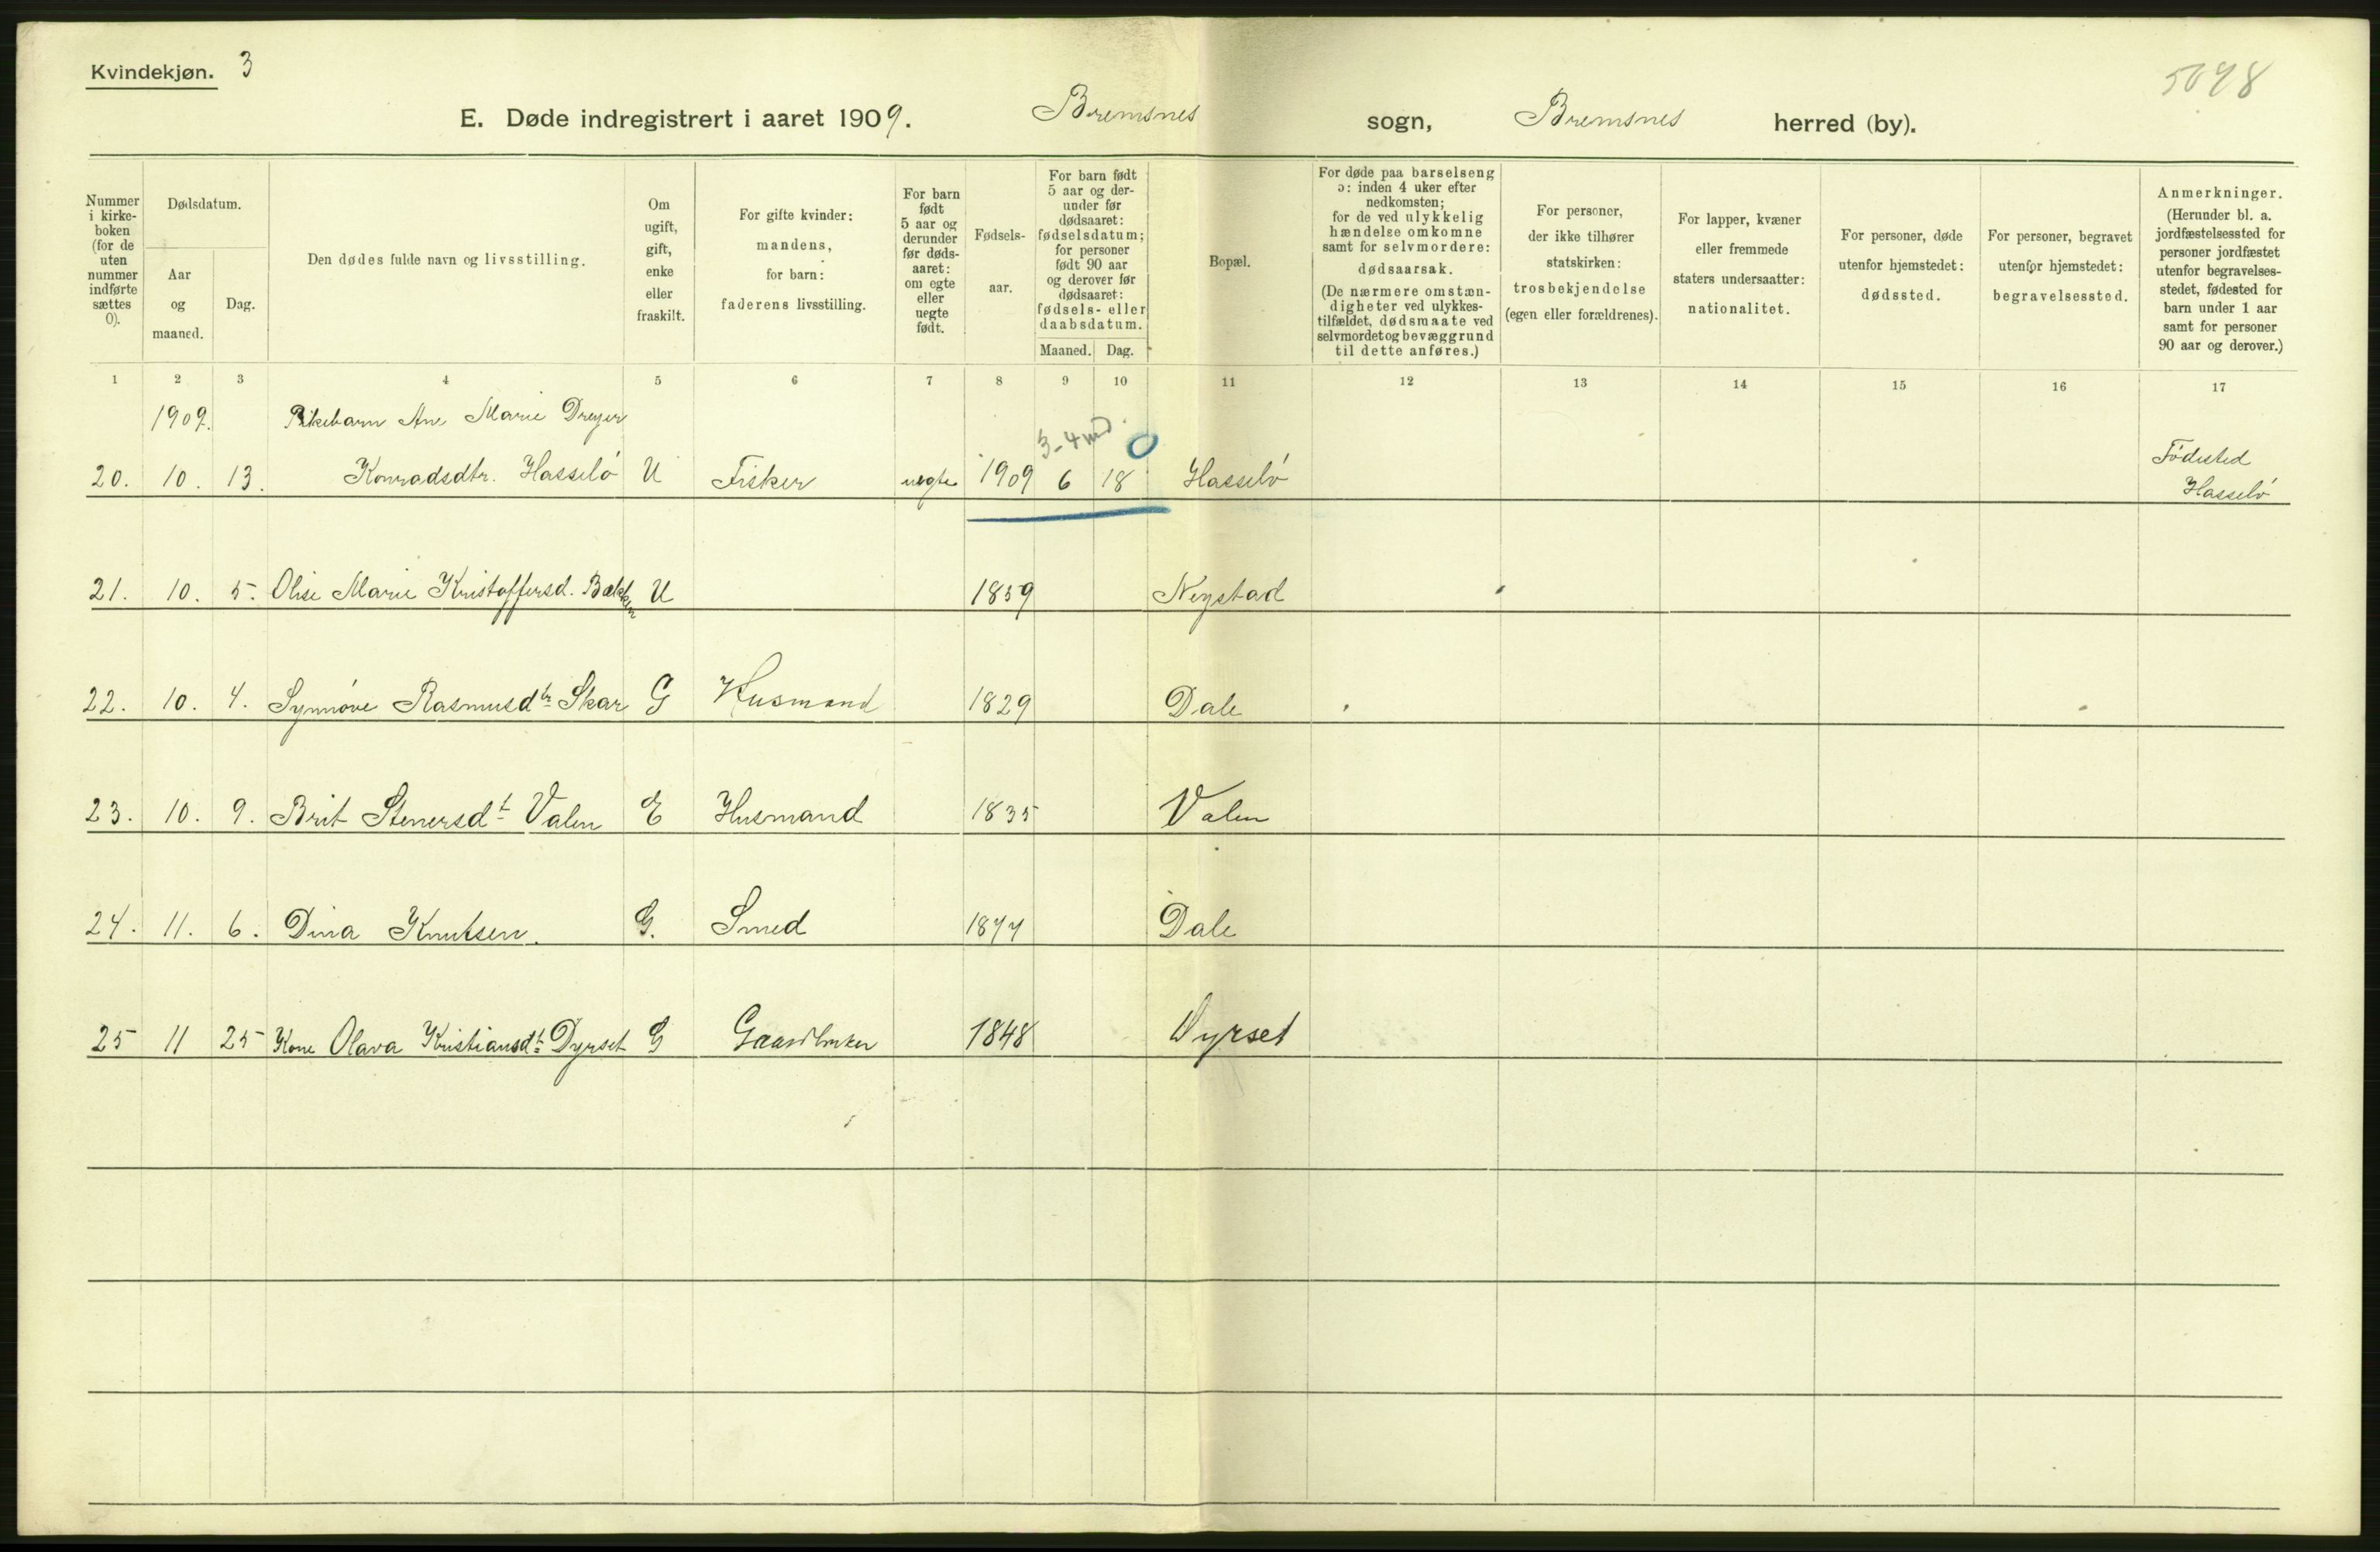 Kvindekjøn. 3
5098
E. Døde indregistrert i aaret 1909. Bremsnes sogn, Bremsnes herred (by).
Nummer i kirke-boken (for de uten nummer indførte sættes 0).
Dødsdatum.
Aar og maaned.
Dag.
Den dødes fulde navn og livsstilling.
Om ugift, gift, enke eller fraskilt.
For gifte kvinder: mandens, for barn: faderens livsstilling.
For barn født 5 aar og derunder før døds-aaret: om egte eller uegte født.
Fødsels-aar.
For barn født 5 aar og der-under før dødsaaret: fødselsdatum; for personer født 90 aar og derover før dødsaaret: fødsels- eller daabsdatum.
Maaned. Dag.
Bopæl.
For døde paa barselseng ɔ: inden 4 uker efter nedkomsten; for de ved ulykkelig hændelse omkomne samt for selvmordere: dødsaarsak. (De nærmere omstæn-digheter ved ulykkes-tilfældet, dødsmaate ved selvmordet og bevæggrund til dette anføres.)
For personer, der ikke tilhører statskirken: trosbekjendelse (egen eller forældrenes).
For lapper, kvæner eller fremmede staters undersaatter: nationalitet.
For personer, døde utenfor hjemstedet: dødssted.
For personer, begravet utenfor hjemstedet: begravelsessted.
Anmerkninger. (Herunder bl. a. jordfæstelsessted for personer jordfæstet utenfor begravelses-stedet, fødested for barn under 1 aar samt for personer 90 aar og derover.)
1 2 3 4 5 6 7 8 9 10 11 12 13 14 15 16 17
1909. Pikebarn Ane Marie Dreyer
3-4 md. 0
20. 10. 13. Konradsdtr. Hasselö U Fisker uegte 1909 6 18 Hasselö Födested Hasselö
21. 10. 5. Olise Marie Kristoffersd. Bakken U 1859 Neystad
22. 10. 4. Synnöve Rasmusdtr Skar G Husmand 1829 Dale
23. 10. 9. Brit Stenersdt Valen E Husmand 1835 Valen
24. 11. 6. Dina Knutsen. G. Smed 1877 Dale
25 11 25 Kone Olava Kristiansdt Dyrset G Gaardbruker 1848 Dyrset